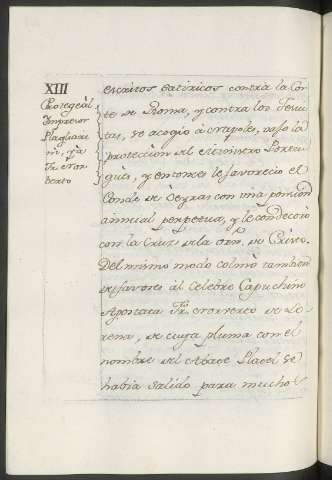 XIII
Protege al
Impresor
Plagliari
ni, y a
Fr. Nor
berto
escritos satiricos contra la Cor
te de Roma, y contra los Jesui
tas, se acogio à Napoles, vajo la
proteccion del Ministro Portu
gués, y entonces le favorecio el
Conde de Oeyras con una pension
annual perpetua, y le condecoro
con la Cruz de la orn. de Christo.
Del mismo modo colmò tambien
de favores al Celebre Capuchino
Apostata Fr. Norverto de Lo
rena, de cuya pluma con el
nombre del Abate Platel se
habia valido para muchos